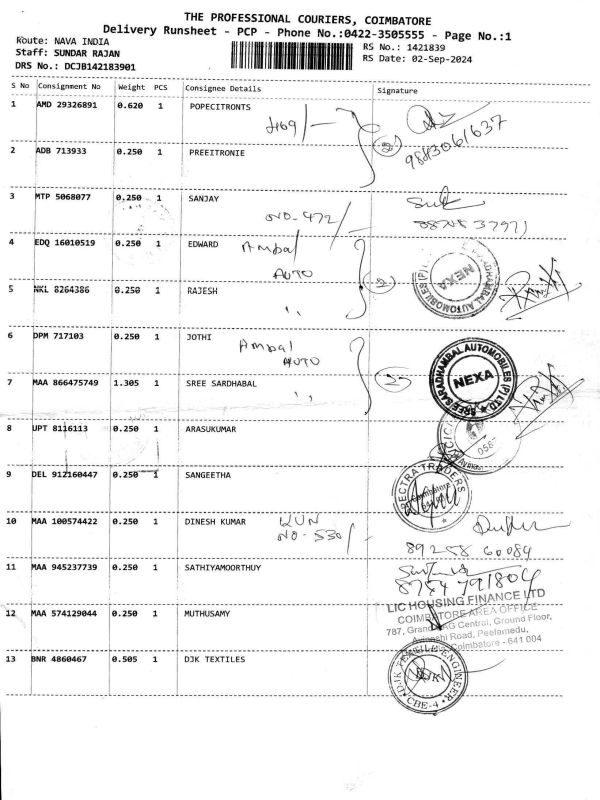 THE PROFESSIONAL COURIERS, COIMBATORE
Delivery Runsheet - PCP - Phone No.:0422-3505555 - Page No.:1
Route: NAVA INDIA
RS No.: 1421839
Staff: SUNDAR RAJAN
RS Date: 02-Sep-2024
DRS No.: DCJB142183901
S No Consignment No Weight PCS Consignee Details Signature
1 AMD 29326891 0.620 1 POPECITRONTS
469/-
2
9843061637
2 ADB 713933 0.250 1 PREEITRONIE
3 MTP 5068077 0.250 1 SANJAY
NO-472/-
4 EDQ 16010519 0.250 1 EDWARD Ambal
AUTO
NEXA
5 NKL 8264386 0.250 1 RAJESH ,,
2
6 DPM 717103 0.250 1 JOTHI Ambal
AUTO
SREE SARADHAMBAL AUTOMOBILES (P) LTD
NEXA
7 MAA 866475749 1.305 1 SREE SARDHABAL ,,
8 UPT 8116113 0.250 1 ARASUKUMAR
9 DEL 912160447 0.250 1 SANGEETHA
TRADERS
Coimbatore
10 MAA 100574422 0.250 1 DINESH KUMAR KUN
NO-530/-
89258 60084
11 MAA 945237739 0.250 1 SATHIYAMOORTHUY
8754 791804
12 MAA 574129044 0.250 1 MUTHUSAMY
LIC HOUSING FINANCE LTD
COIMBATORE AREA OFFICE
787, Grand Central, Ground Floor,
Avinashi Road, Peelamedu,
Coimbatore - 641 004
13 BNR 4860467 0.505 1 DJK TEXTILES
DJK TEXTILE ENGINEER
CBE-4